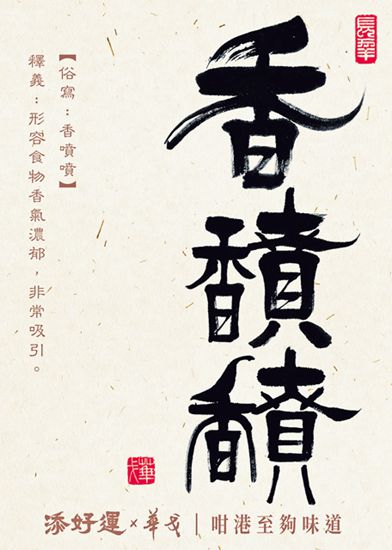 香馩馩
【俗寫：香噴噴】
釋義：形容食物香氣濃郁，非常吸引。
華戈
添好運×華戈｜咁港至夠味道